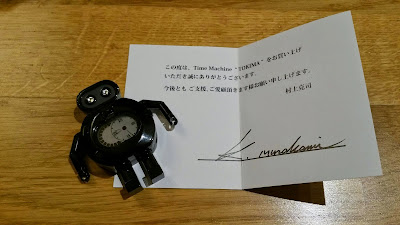 この度は、Time Machine “TOKIMA” をお買い上げ
いただき誠にありがとうございます。
今後とも ご支援、ご愛顧頂きます様お願い申し上げます。
村上克司
K. Murakami